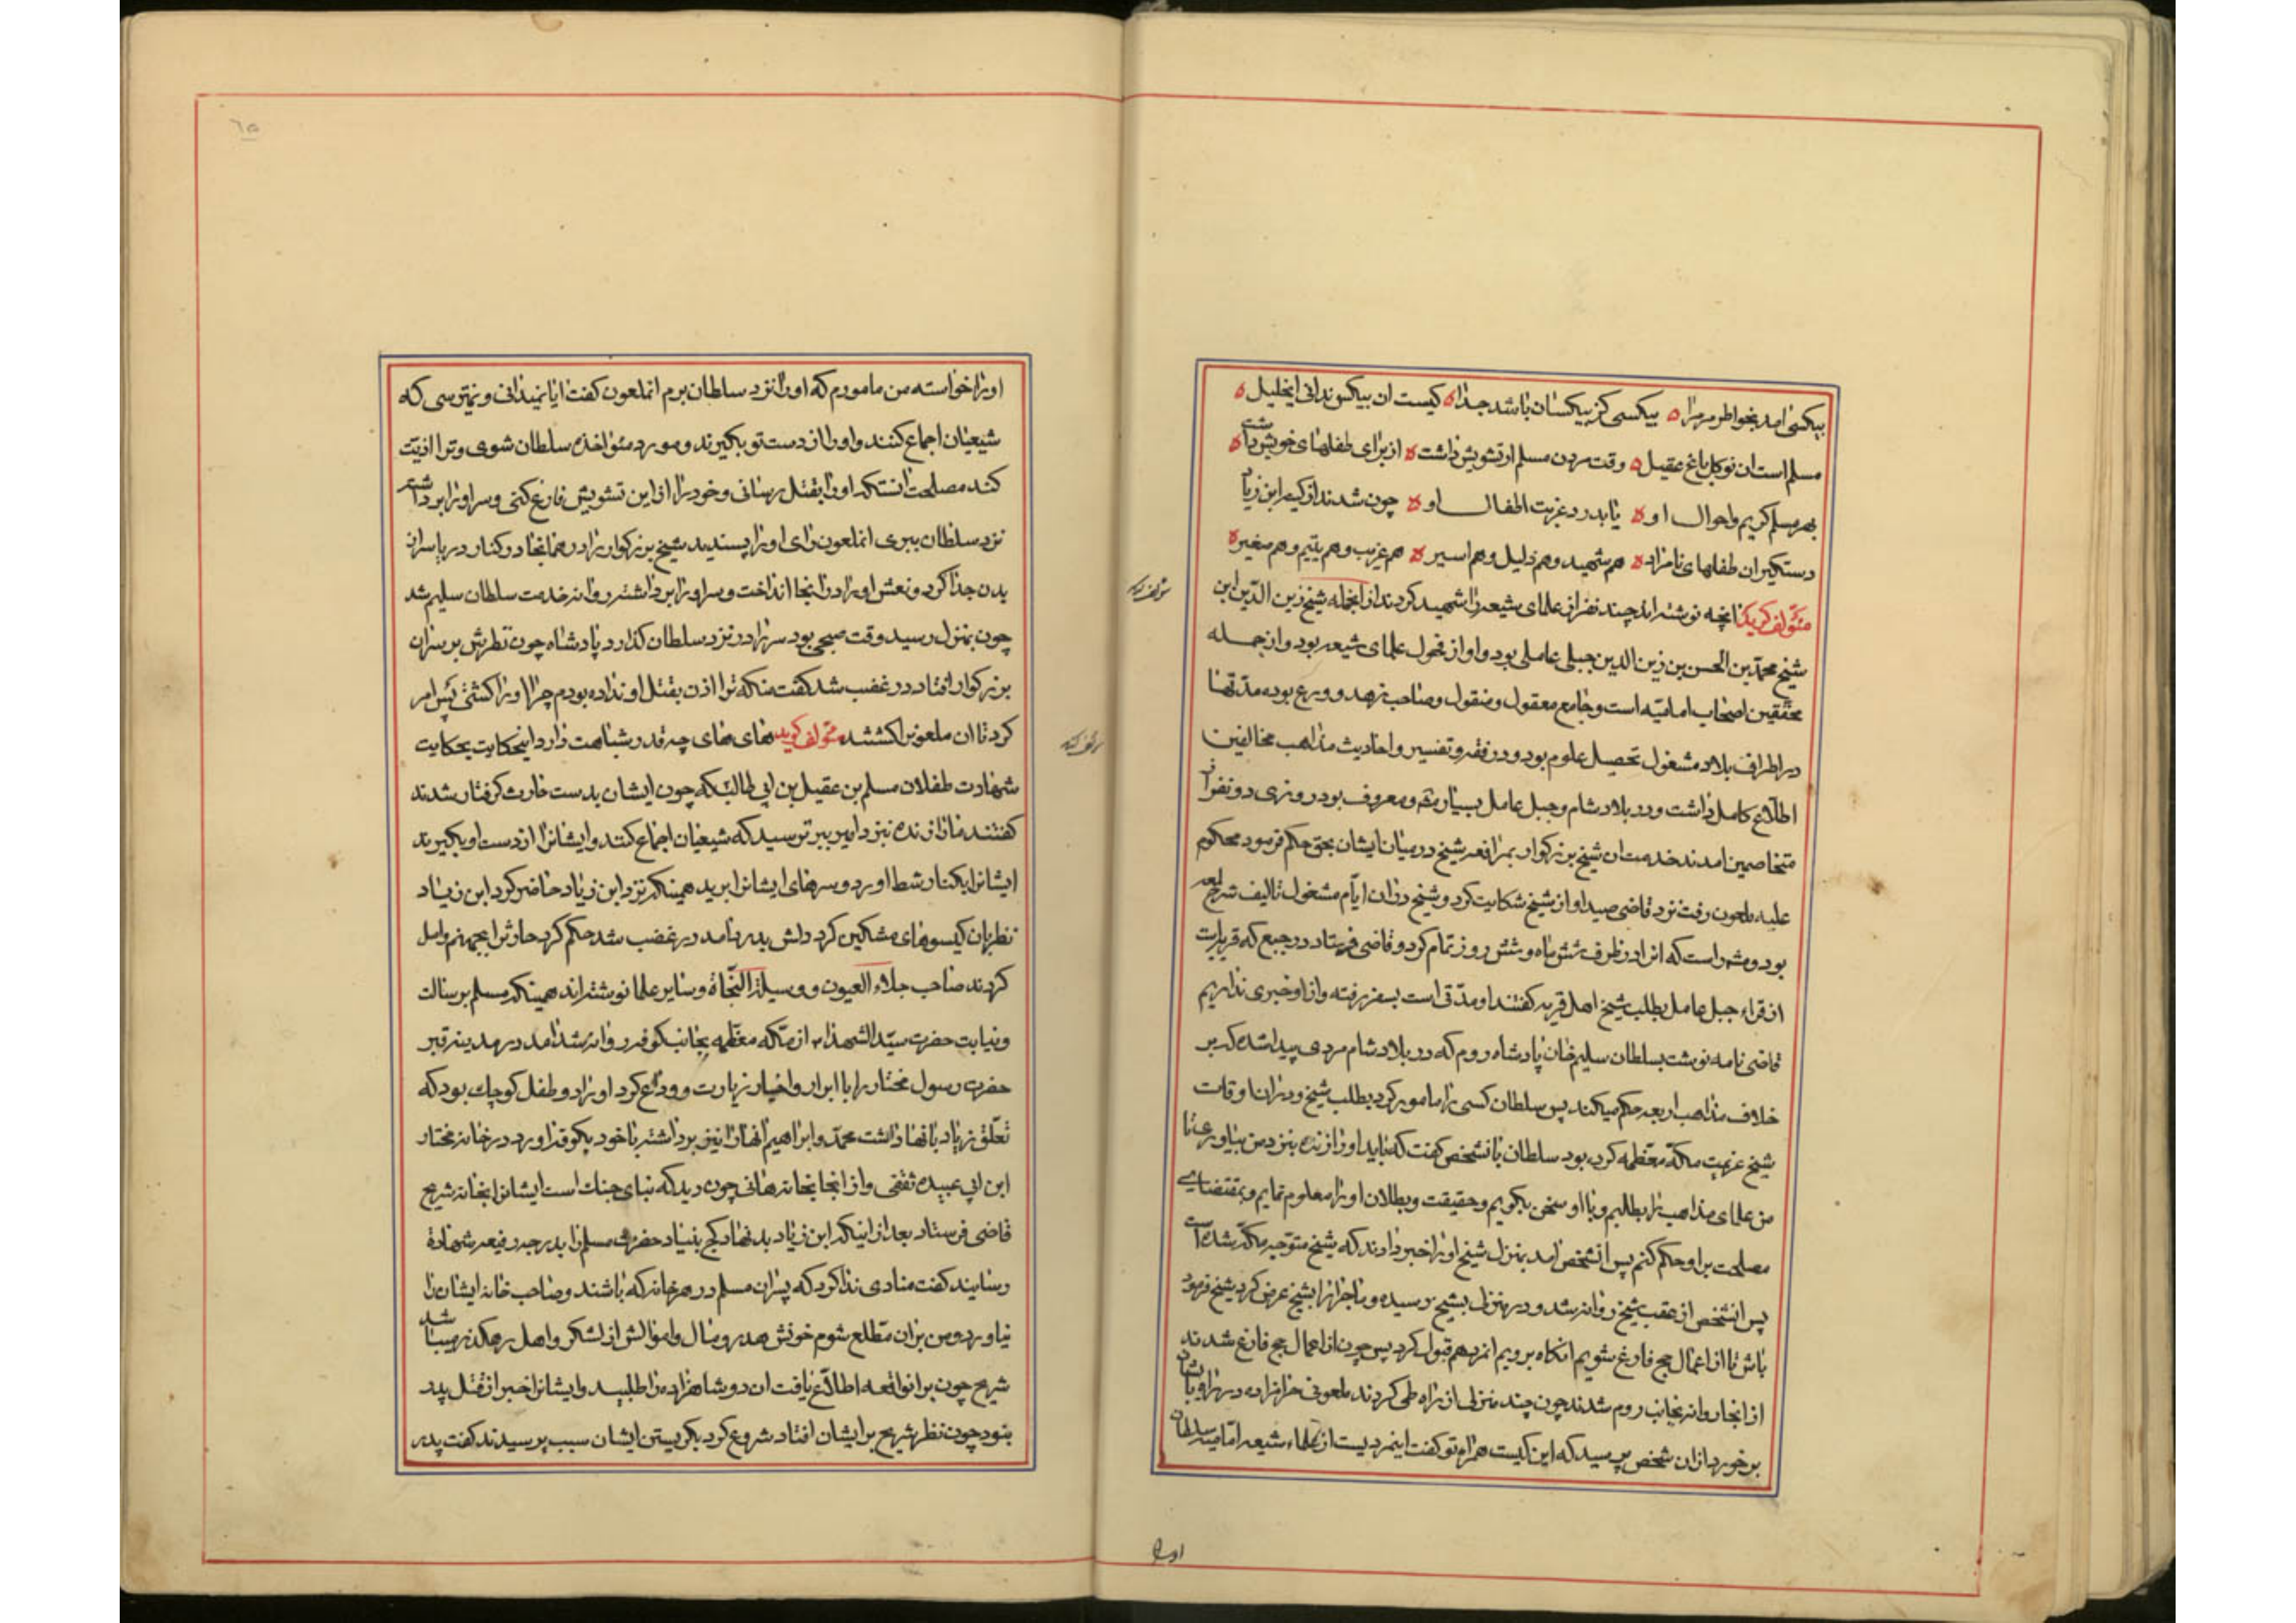 بیکسی امد بخواطر مر مرا ه بیکسی کز بیکسان باشد جدا ه کیست ان بیکس ندانی ایخلیل ه
مسلم است ان نوکل باغ عقیل ه وقت مردن مسلم او تشویش داشت ه از برای طفلهای خویش داشت ه
بهر مسلم کریم و احوال او ه یا بدرد غربت اطفال او ه چون شدند از کید ابن زیاد
دستکیر ان طفلهای نامراد ه هم شهید و هم ذلیل و هم اسیر ه هم غریب و هم یتیم و هم صغیر ه
مئولف کوید انچه نوشته اند چند نفر از علمای شیعه را شهید کردند از انجمله شیخ زین الدین ابن
شیخ محمد بن الحسن بن زین الدین جبلی عاملی بود و او از فحول علمای شیعه بود و از جمله
محققین اصحاب امامیه است و جامع معقول و منقول و صاحب زهد و ورع بوده مدتها
در اطراف بلاد مشغول تحصیل علوم بود و در فقه و تفسیر و احادیث مذاهب مخالفین
اطلاع کامل داشت و در بلاد شام و جبل عامل بسیار و معروف بود روزی دو نفر از
متخاصمین امدند خدمت ان شیخ بزرکوار بمرافعه شیخ در میان ایشان بحق حکم فرمود محکوم
علیه ملعون رفت نزد قاضی صیدا و از شیخ شکایت کرد و شیخ در ان ایام مشغول تالیف شرح لمعه
بود و مشهور است که انرا در ظرف شش ماه و شش روز تمام کرد و قاضی فرستاد در جبع که قریه ایست
از قراء جبل عامل بطلب شیخ اهل قریه کفتند او مدتی است بسفر رفته و از او خبری نداریم
قاضی نامه نوشت بسلطان سلیم خان پادشاه روم که در بلاد شام مردی پیدا شده که بر
خلاف مذاهب اربعه حکم میکند پس سلطان کسی را مامور کرد بطلب شیخ و در ان اوقات
شیخ عزیمت مکه معظمه کرده بود سلطان بانشخص کفت که باید او را زنده بنزد من بیاوری تا
من علمای مذاهب را بطلبم و با او سخن بکویم و حقیقت و بطلان او را معلوم نمایم و بمقتضای
مصلحت بر او حکم کنم پس انشخص امد بمنزل شیخ او را خبر دادند که شیخ متوجه مکه شده است
پس انشخص از عقب شیخ روانه شد و در منزل بشیخ رسیده و ماجرا را بشیخ عرض کرد شیخ فرمود
باش تا از اعمال حج فارغ شویم انکاه برویم انمرد هم قبول کرد پس چون از اعمال حج فارغ شدند
از انجا روانه بجانب روم شدند چون چند منزلی از راه طی کردند ملعونی حرامزاده در راه باو
برخورد از ان شخص پرسید که این کیست همراه تو کفت اینمردیست از علماء شیعه امامیه سلطان
او را
او را خواسته من مامورم که او را نزد سلطان برم انملعون کفت ایا نمیدانی و نمیترسی که
شیعیان اجماع کنند و او را از دست تو بکیرند و مورد مئواخذه سلطان شوی و ترا اذیت
کند مصلحت انستکه او را بقتل رسانی و خود را از این تشویش فارغ کنی و سر او را برداشته
نزد سلطان ببری انملعون رای او را پسندید شیخ بزرکوار را در همانجا در کنار دریا سر از
بدن جدا کرد و نعش او را در انجا انداخت و سر او را برداشته روانه خدمت سلطان سلیم شد
چون بمنزل رسید وقت صبحی بود سر را در نزد سلطان کذارد پادشاه چون نظرش بر سر ان
بزرکوار افتاد در غضب شد کفت منکه ترا اذن بقتل او نداده بودم چرا او را کشتی پس امر
کرد تا ان ملعونرا کشتند مئولف کوید های های چه قدر شباهت دارد اینحکایت بحکایت
شهادت طفلان مسلم بن عقیل بن ابی طالب که چون ایشان بدست حارث کرفتار شدند
کفتند ما را زنده نزد امیر ببر ترسید که شیعیان اجماع کنند و ایشانرا از دست او بکیرند
ایشانرا بکنار شط اورد و سرهای ایشانرا برید همینکه نزد ابن زیاد حاضر کرد ابن زیاد
نظر بان کیسوهای مشکین کرد دلش بدرد امد در غضب شد حکم کرد حارثرا بجهنم واصل
کردند صاحب جلاء العیون و وسیلة النجاة و سایر علما نوشته اند همینکه مسلم برسالت
و نیابت حضرت سید الشهدا از مکه معظمه بجانب کوفه روانه شد امد در مدینه قبر
حضرت رسول مختار را با ابرار و اخیار زیارت و وداع کرد او را دو طفل کوچک بود که
تعلق زیاد بانها داشت محمد و ابراهیم انها را نیز برداشته با خود بکوفه اورد در خانه مختار
ابن ابی عبیده ثقفی و از انجا بخانه هانی چون دید که بنای جنک است ایشانرا بخانه شریح
قاضی فرستاد بعد از اینکه ابن زیاد بد نهاد کج بنیاد حضرت مسلم را بدرجه رفیعه شهادة
رسانید کفت منادی ندا کرد که پسران مسلم در هر خانه که باشند و صاحب خانه ایشان را
نیاورد و من بران مطلع شوم خونش هدر و مال و اموالش از لشکر و اهل رهکذر میباشد
شریح چون بر انواقعه اطلاع یافت ان دو شاهزاده را طلبید و ایشانرا خبر از قتل پدر
بنود چون نظر شریح بر ایشان افتاد شروع کرد بکریستن ایشان سبب پرسیدند کفت پدر
٦٥